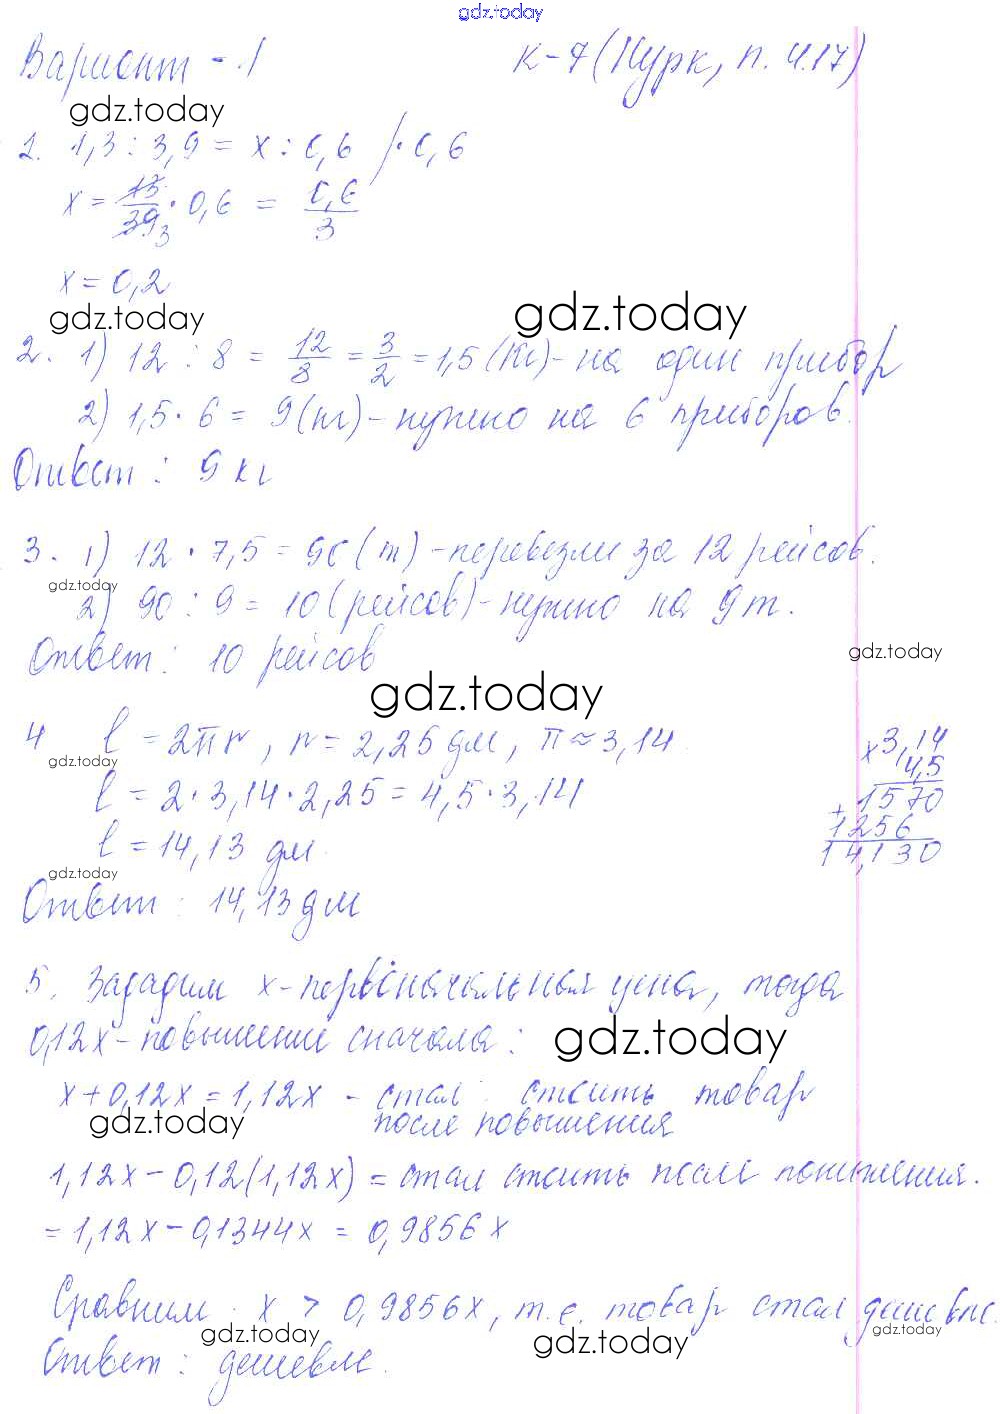 gdz.today
Вариант - 1 К-7 (Нурк, п. 4.17)
gdz.today
1. 1,3 : 3,9 = x : 0,6 / · 0,6
x = 13/39 3 · 0,6 = 0,6/3
x = 0,2
gdz.today gdz.today
2. 1) 12 : 8 = 12/8 = 3/2 = 1,5 (кг) - на один прибор
2) 1,5 · 6 = 9 (кг) - нужно на 6 приборов.
Ответ : 9 кг
3. 1) 12 · 7,5 = 90 (т) - перевезли за 12 рейсов.
gdz.today
2) 90 : 9 = 10 (рейсов) - нужно на 9 т.
Ответ : 10 рейсов
gdz.today
gdz.today
4 l = 2πr, r = 2,25 дм, π ≈ 3,14
gdz.today
l = 2 · 3,14 · 2,25 = 4,5 · 3,14
l = 14,13 дм
gdz.today
Ответ : 14,13 дм
x 3,14
4,5
+ 1570
1256
14,130
5. Зададим x - первоначальная цена, тогда
0,12x - повышение сначала :
gdz.today
x + 0,12x = 1,12x - стал стоить товар
после повышения
gdz.today
1,12x - 0,12(1,12x) = стал стоить после понижения.
= 1,12x - 0,1344x = 0,9856x
Сравним x > 0,9856x, т.е. товар стал дешевле.
gdz.today gdz.today gdz.today
Ответ : дешевле.